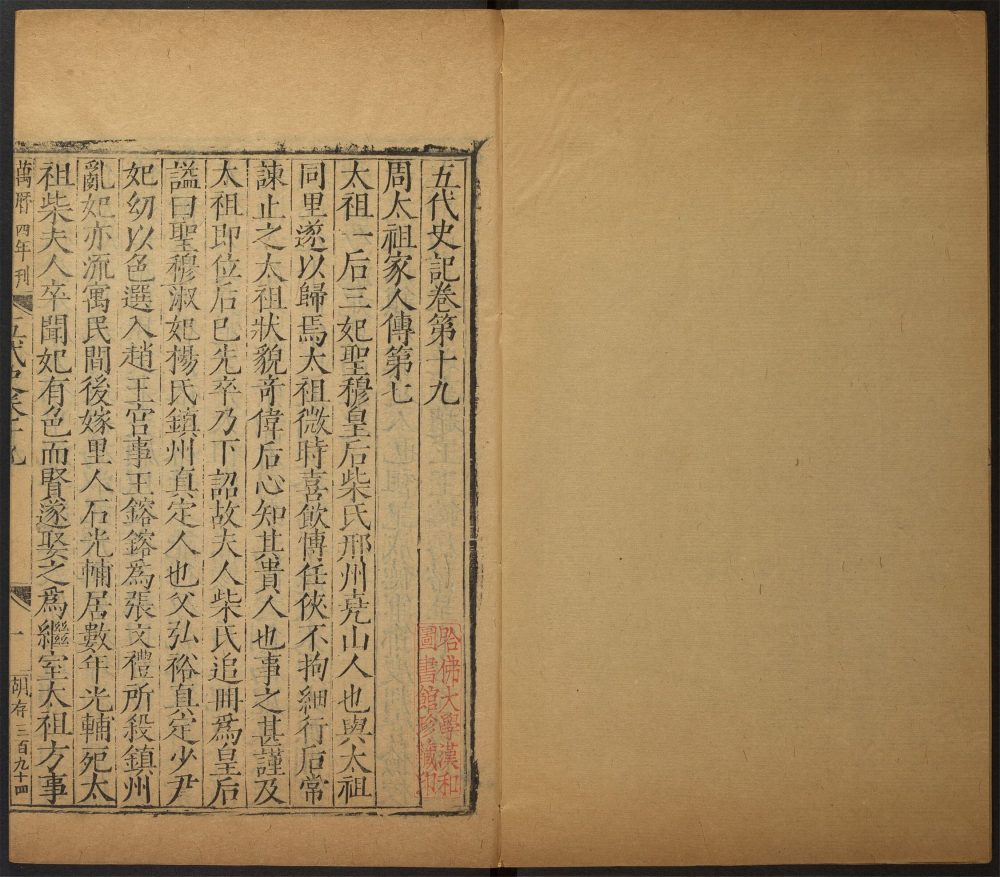 五代史記卷第十九
周太祖家人傳第七
太祖一后三妃聖穆皇后柴氏邢州堯山人也與太祖
同里遂以歸焉太祖微時喜飲博任俠不拘細行后常
諫止之太祖狀貌竒偉后心知其貴人也事之甚謹及
太祖即位后已先卒乃下詔故夫人柴氏追冊爲皇后
謚曰聖穆淑妃楊氏鎮州真定人也父弘裕真定少尹
妃幼以色選入趙王宫事王鎔鎔爲張文禮所殺鎮州
亂妃亦流寓民間後嫁里人石光輔居數年光輔死太
祖柴夫人卒聞妃有色而賢遂娶之爲繼室太祖方事
萬曆四年刊
五代史卷十九
一
胡存 三百九十四
哈佛大學漢和
圖書館珍藏印